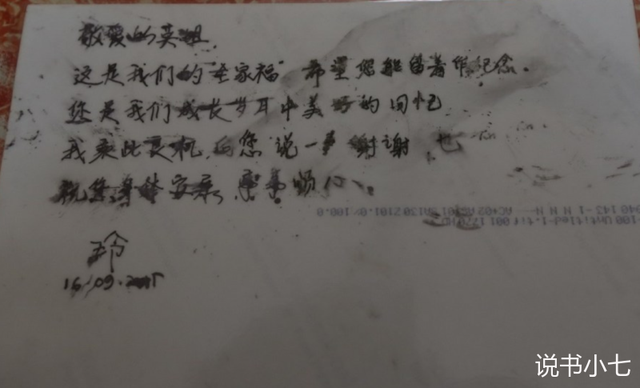 敬爱的英姐
这是我们的"全家福"希望您能留着作纪念.
您是我们成长岁月中美好的回忆
我乘此良机,向您说一声谢谢 也
祝您身体安康,事事顺心.
玲
16.09.2015
说书小七